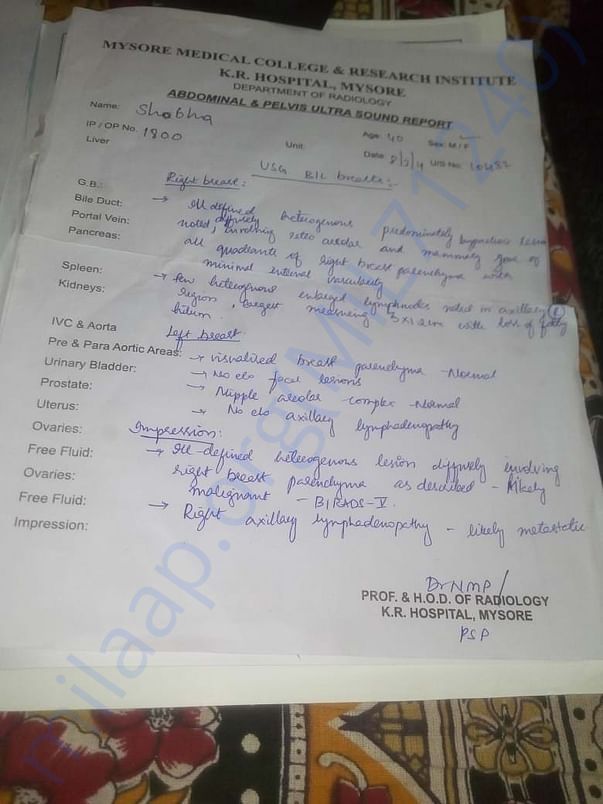 MYSORE MEDICAL COLLEGE & RESEARCH INSTITUTE
K.R. HOSPITAL, MYSORE
DEPARTMENT OF RADIOLOGY
ABDOMINAL & PELVIS ULTRA SOUND REPORT
Name: Shobha Age: 40 Sex: M / F
IP / OP No. 1800 Unit: Date: U/S No.
Liver
USG B/L breasts:-
G.B.: Right breast:
Bile Duct: → Ill defined diffusely heterogenous predominately
Portal Vein: noted, involving retro areolar and mammary zone of
Pancreas: all quadrants of right breast parenchyma with
minimal internal vascularity
Spleen: → few heterogenous enlarged lymphnodes noted in axillary (R)
Kidneys: region, largest measuring with loss of fatty
hilum.
IVC & Aorta Left breast
Pre & Para Aortic Areas: → visualized breast parenchyma - Normal
Urinary Bladder: → No e/o focal lesions
Prostate: → Nipple areolar complex - Normal
Uterus: → No e/o axillary lymphadenopathy
Ovaries: Impression:
Free Fluid: → Ill-defined heterogenous lesion diffusely involving
Ovaries: right breast parenchyma as described - likely
Free Fluid: malignant - BIRADS-V.
Impression: → Right axillary lymphadenopathy - likely metastatic
Dr NMP/
PROF. & H.O.D. OF RADIOLOGY
K.R. HOSPITAL, MYSORE
PSP